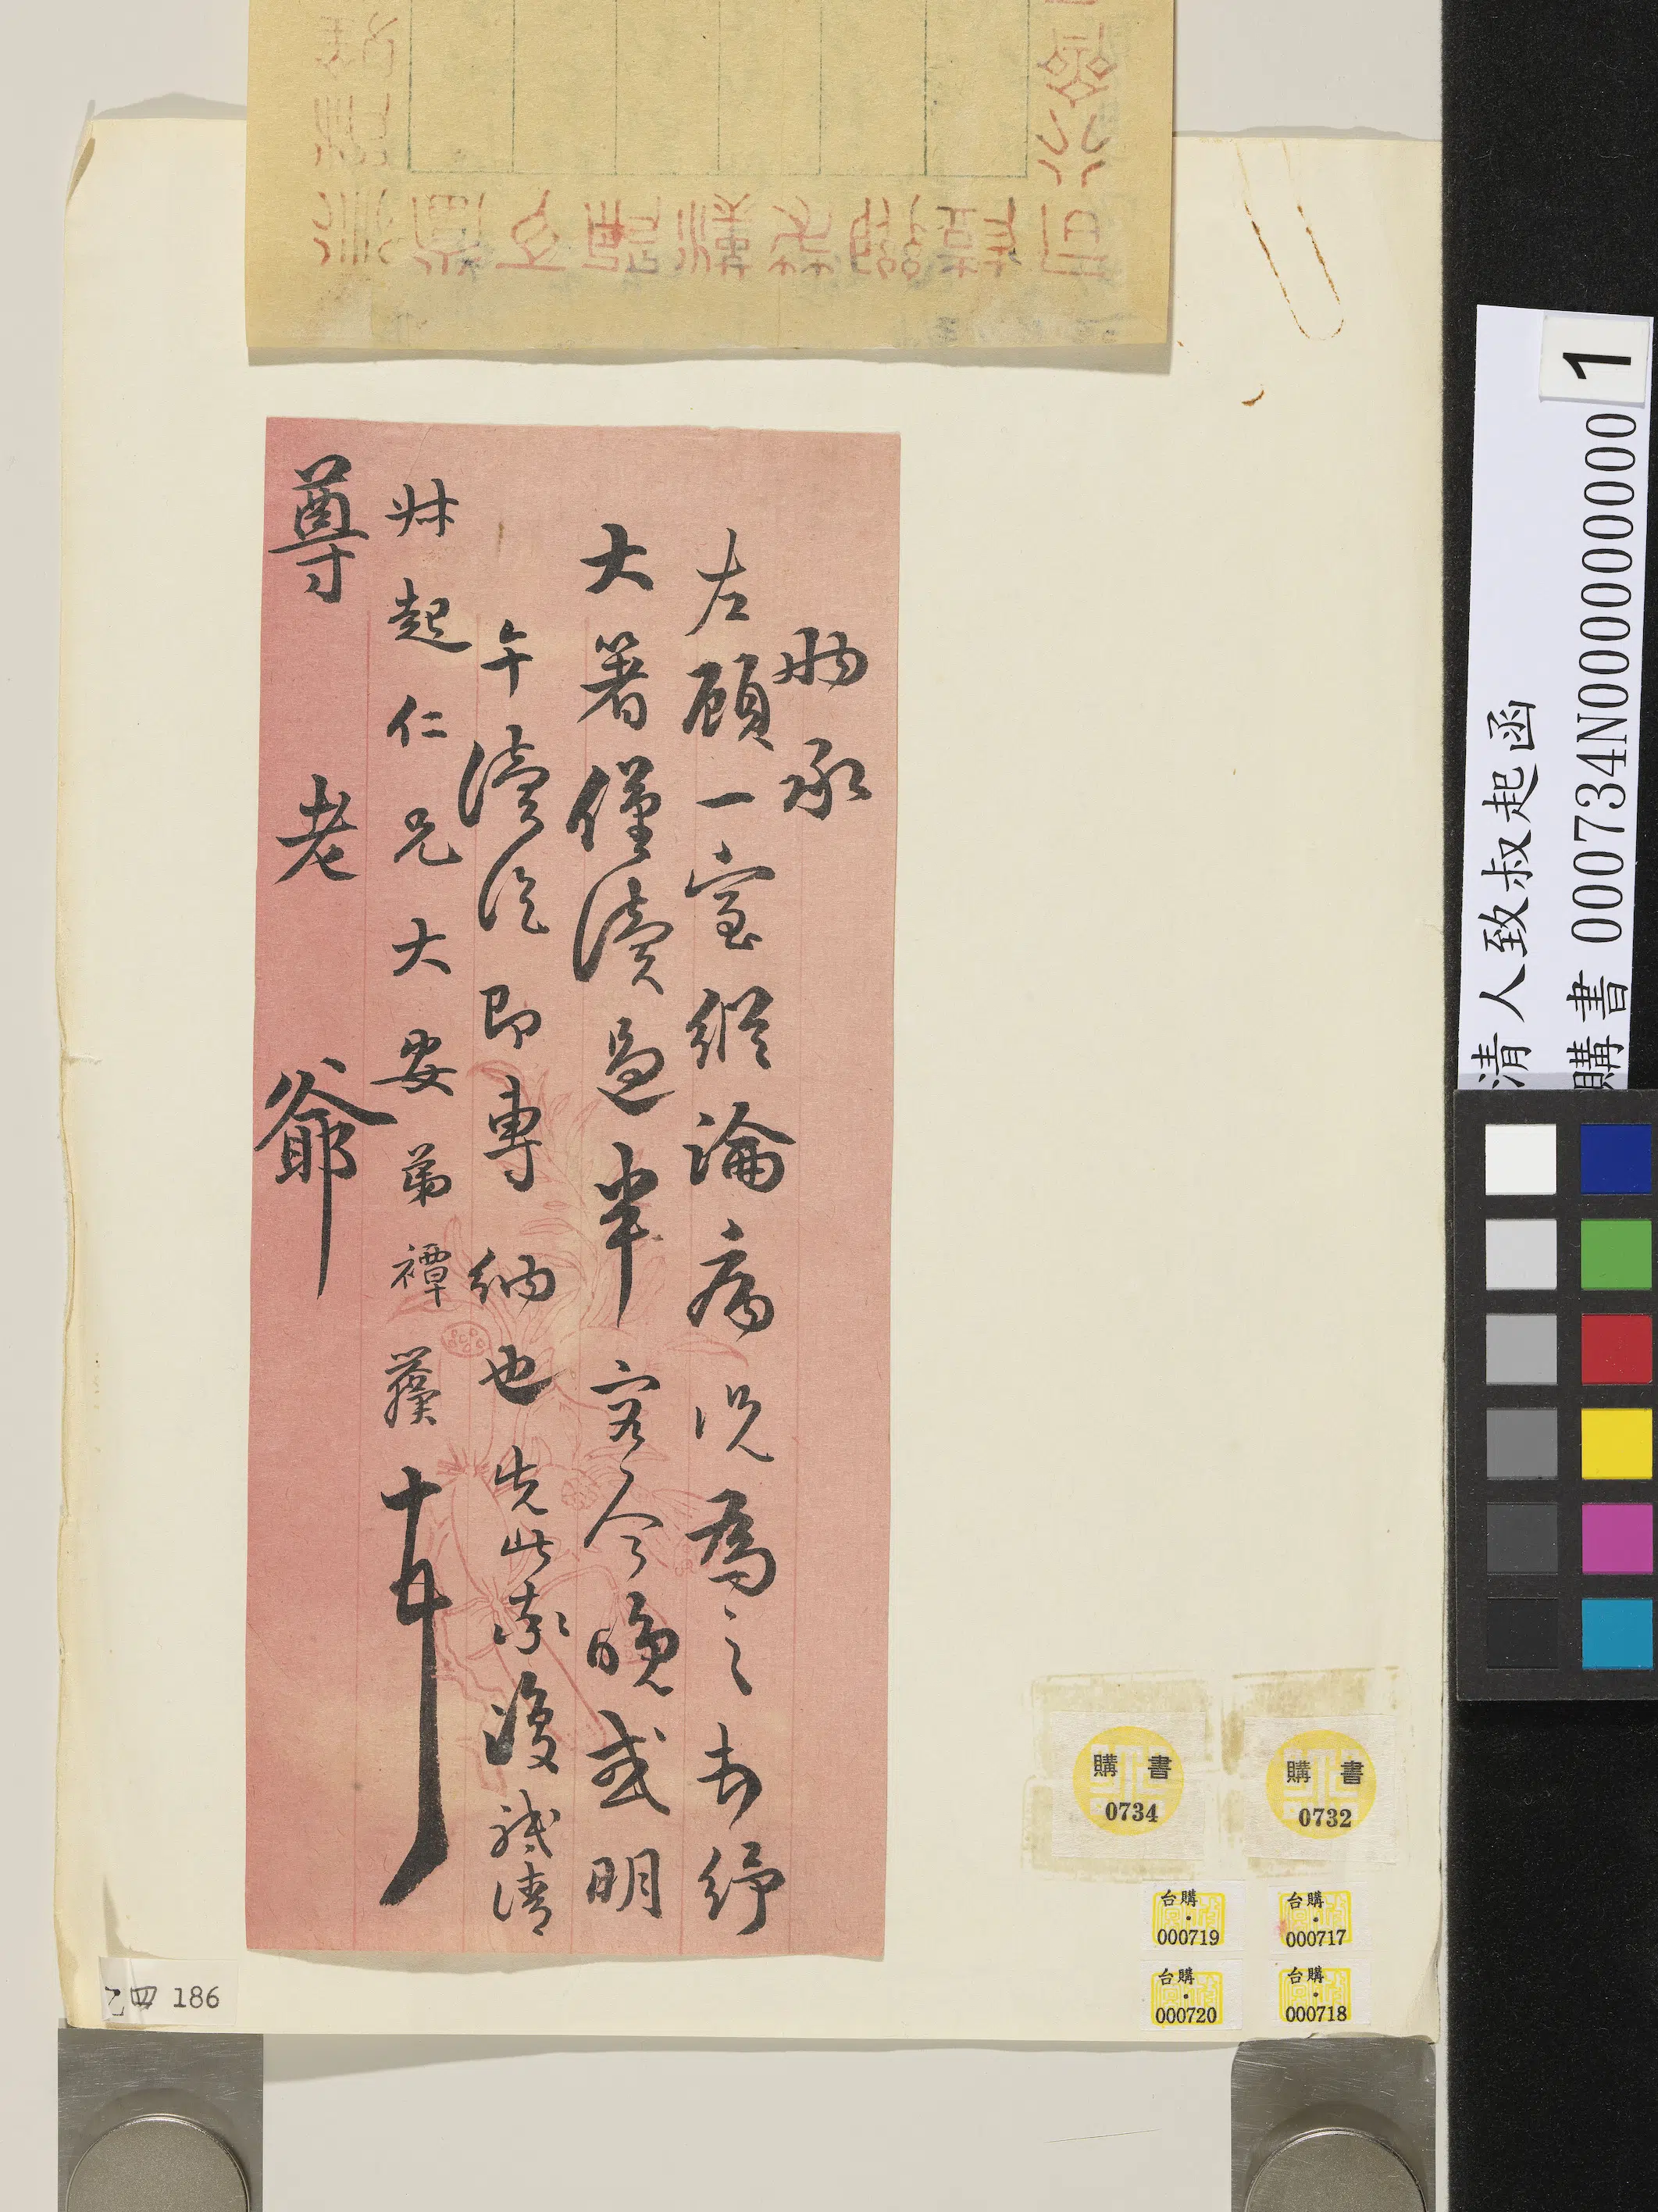 昨承
左顧一室縱論病況為之大紓
大著僅讀過半容今晚或明
午讀訖即專納也先此奉復祗請
尗起仁兄大安弟禫蘉頓
尊老爺
清人致叔起函
購書 000734N000000000
1
購書
0734
購書
0732
台購
000719
台購
000717
台購
000720
台購
000718
乙四 186